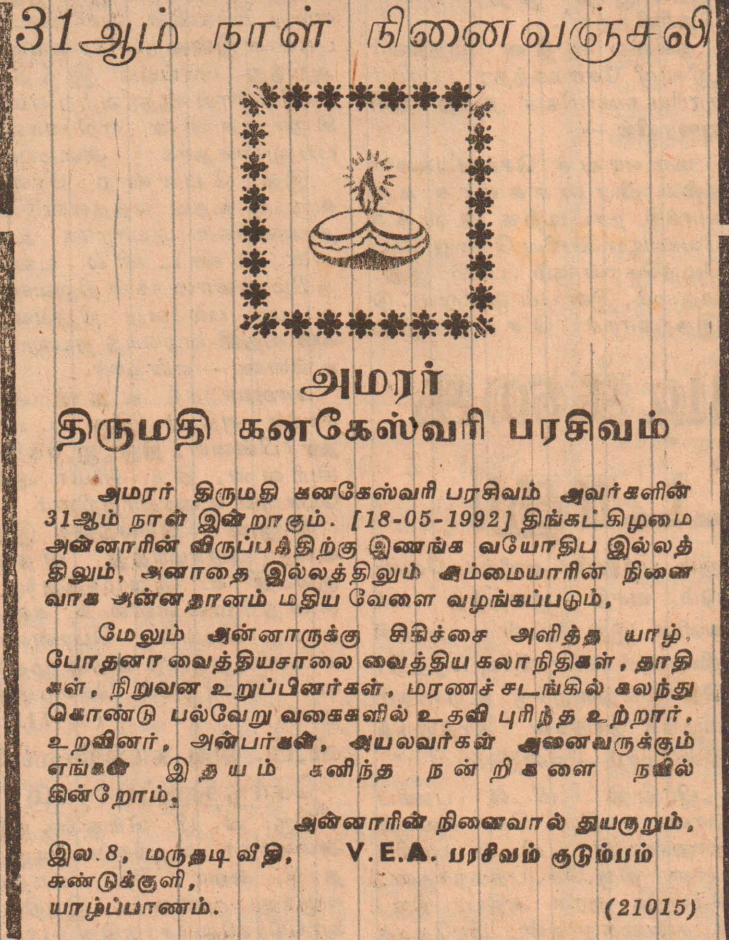 31ஆம் நாள் நினைவஞ்சலி
அமரர்
திருமதி கனகேஸ்வரி பரசிவம்
அமரர் திருமதி கனகேஸ்வரி பரசிவம் அவர்களின்
31ஆம் நாள் இன்றாகும். [18-05-1992] திங்கட்கிழமை
அன்னாரின் விருப்பத்திற்கு இணங்க வயோதிப இல்லத்
திலும், அனாதை இல்லத்திலும் அம்மையாரின் நினை
வாக அன்னதானம் மதிய வேளை வழங்கப்படும்.
மேலும் அன்னாருக்கு சிகிச்சை அளித்த யாழ்.
போதனா வைத்தியசாலை வைத்திய கலாநிதிகள், தாதி
கள், நிறுவன உறுப்பினர்கள், மரணச் சடங்கில் கலந்து
கொண்டு பல்வேறு வகைகளில் உதவி புரிந்த உற்றார்,
உறவினர், அன்பர்கள், அயலவர்கள் அனைவருக்கும்
எங்கள் இதயம் கனிந்த நன்றிகளை நவில்
கின்றோம்.
அன்னாரின் நினைவால் துயருறும்,
இல.8, மருதடி வீதி, V.E.A. பரசிவம் குடும்பம்
சுண்டுக்குளி,
யாழ்ப்பாணம். (21015)